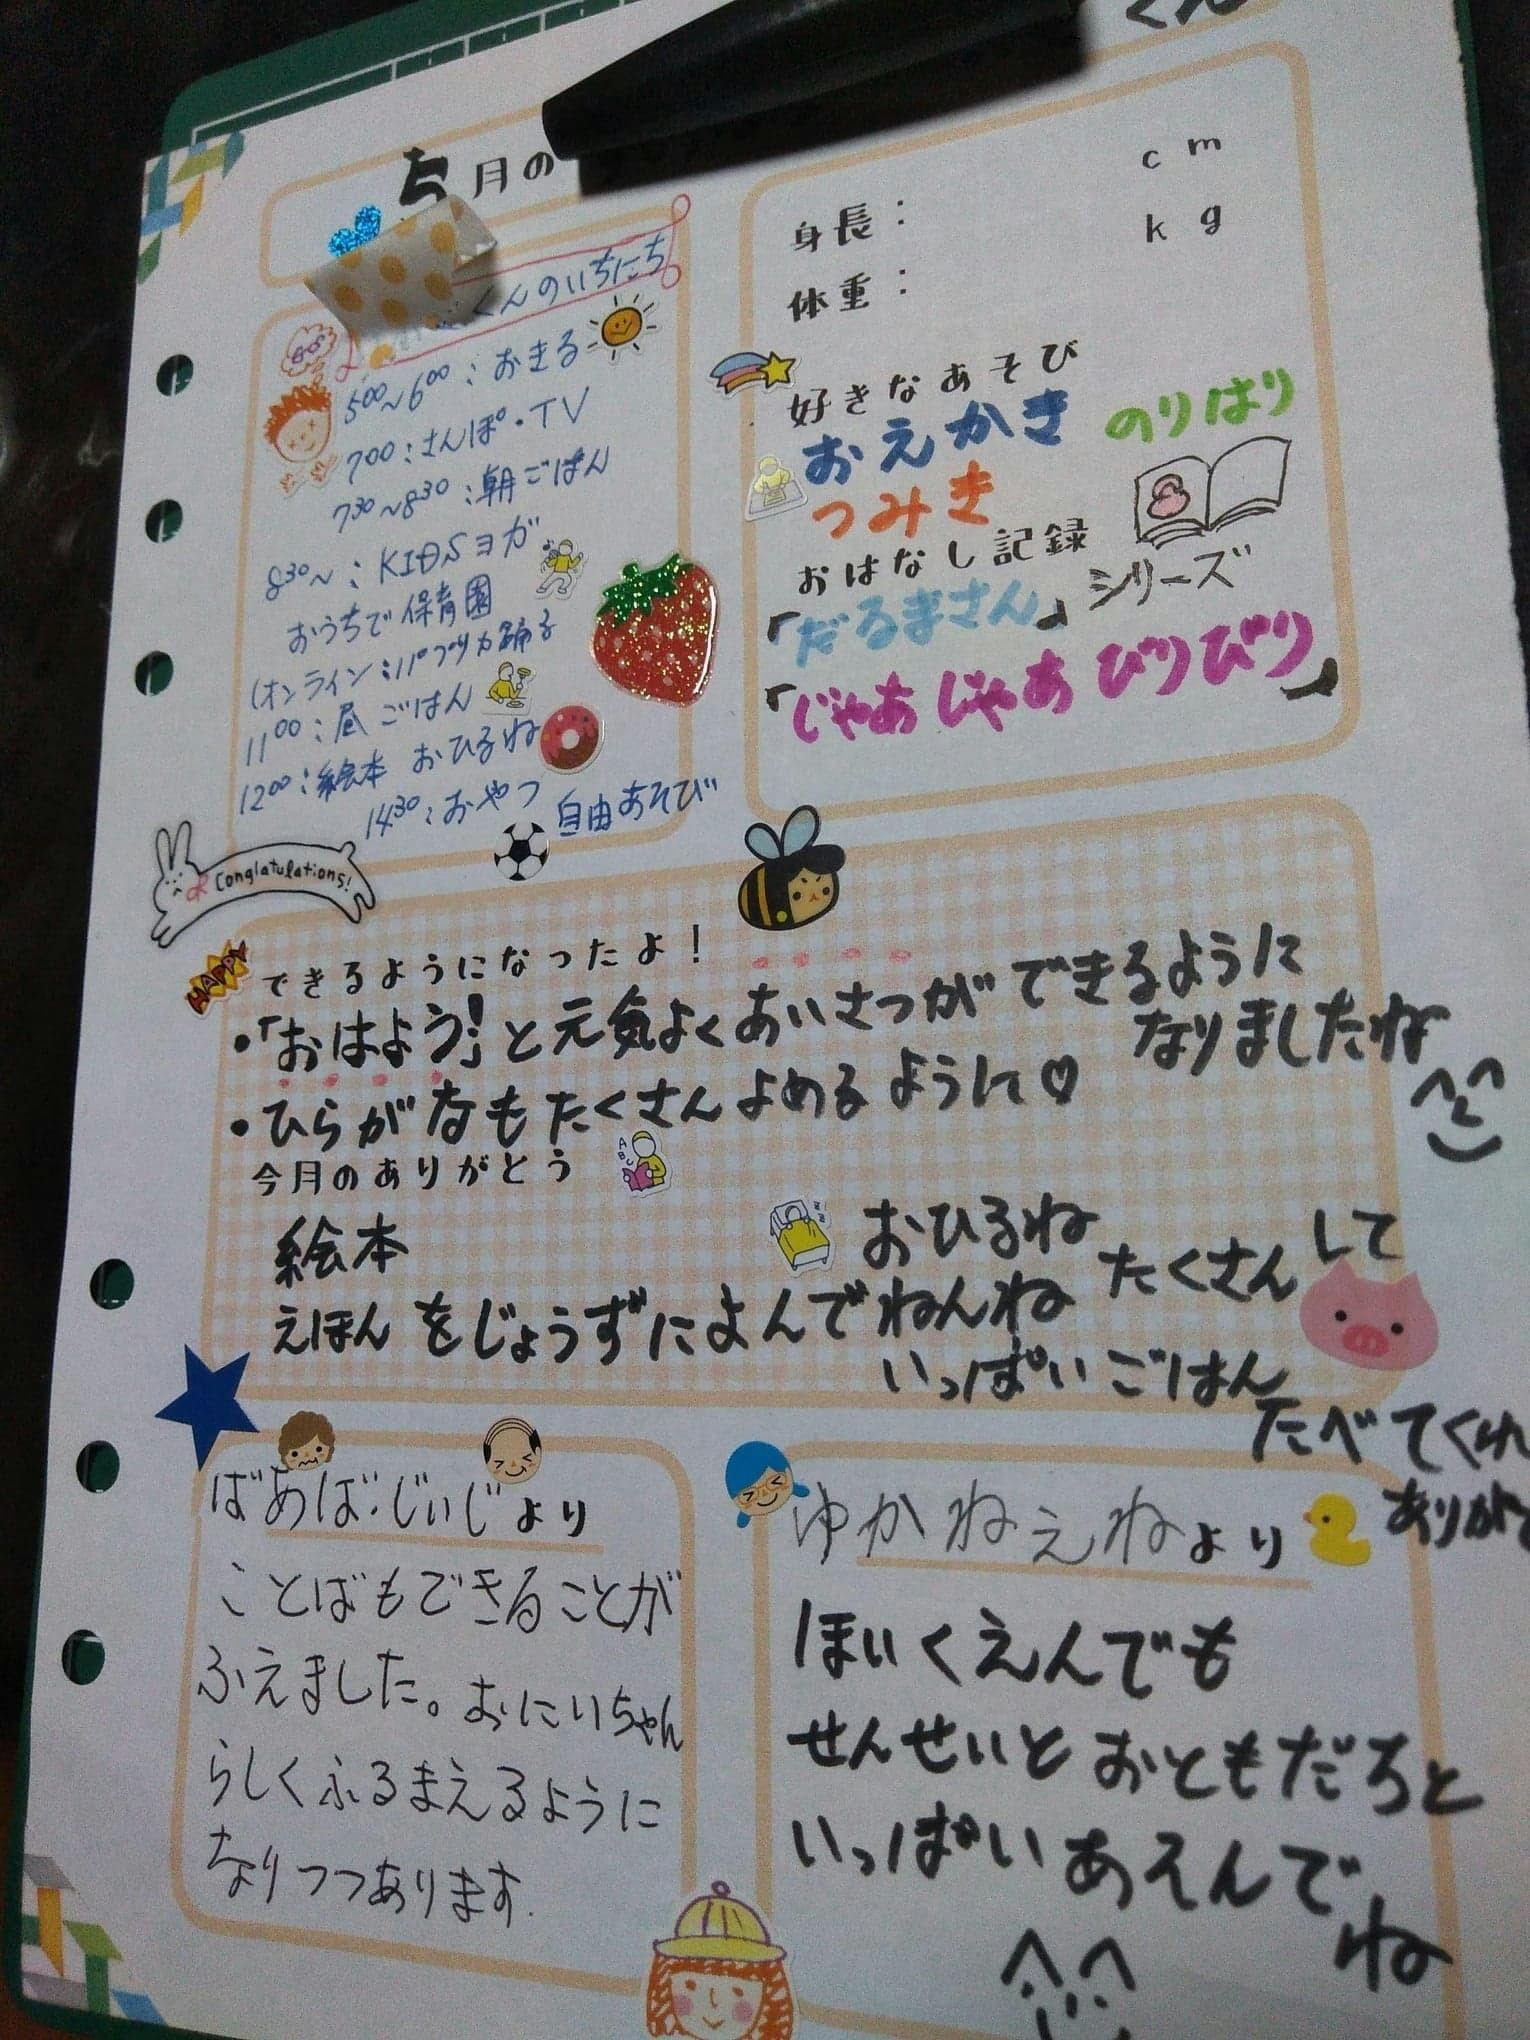 くん
5月の
くんのいちにち
5:00~6:00：おきる
7:00：さんぽ・TV
7:30~8:30：朝ごはん
8:30~：KIDSヨガ
おうちで保育園
(オンライン：パプリカ踊る
11:00：昼ごはん
12:00：絵本 おひるね
14:30：おやつ 自由あそび
身長： cm
体重： kg
好きなあそび
おえかき のりはり
つみき
おはなし記録
「だるまさん」シリーズ
「じゃあじゃあびりびり」
Conglatulations!
HAPPY
できるようになったよ！
・「おはよう!」と元気よくあいさつができるように
なりましたね
・ひらがなもたくさんよめるように♡
今月のありがとう
ABC
絵本
えほんをじょうずによんで
おひるね たくさん して
ねんね
いっぱいごはん
たべてくれ
ありがと
ばあば・じいじより
ことばもできることが
ふえました。おにいちゃん
らしくふるまえるように
なりつつあります.
ゆかねえねより
ほいくえんでも
せんせいとおともだちと
いっぱいあそんで
ね